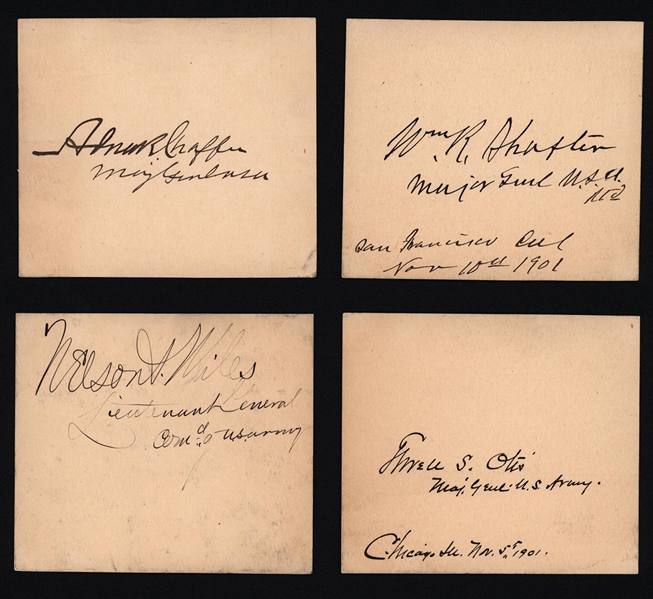 Adna R Chaffee
Maj Genl USA
Wm. R. Shafter
Major Genl U.S.A.
Rtd
San Francisco Cal
Nov 10th 1901
Nelson A. Miles
Lieutenant General
Comd'g U.S. Army
Elwell S. Otis
Maj. Genl. U.S. Army.
Chicago. Ill. Nov. 5th, 1901.